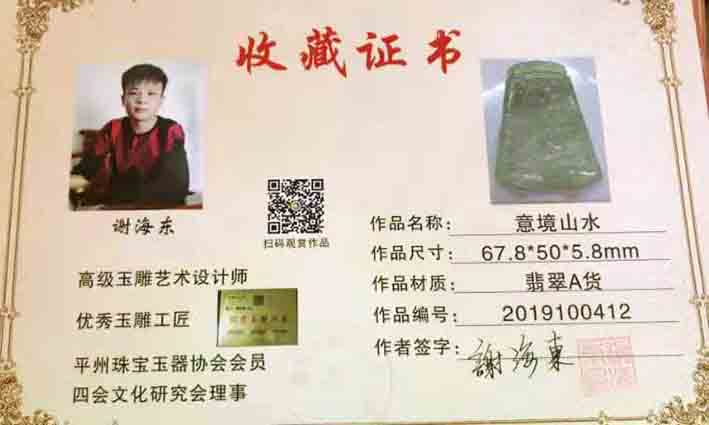 收藏证书
谢海东
扫码观赏作品
高级玉雕艺术设计师
优秀玉雕工匠
平州珠宝玉器协会会员
四会文化研究会理事
作品名称: 意境山水
作品尺寸: 67.8*50*5.8mm
作品材质: 翡翠A货
作品编号: 2019100412
作者签字: 謝海東